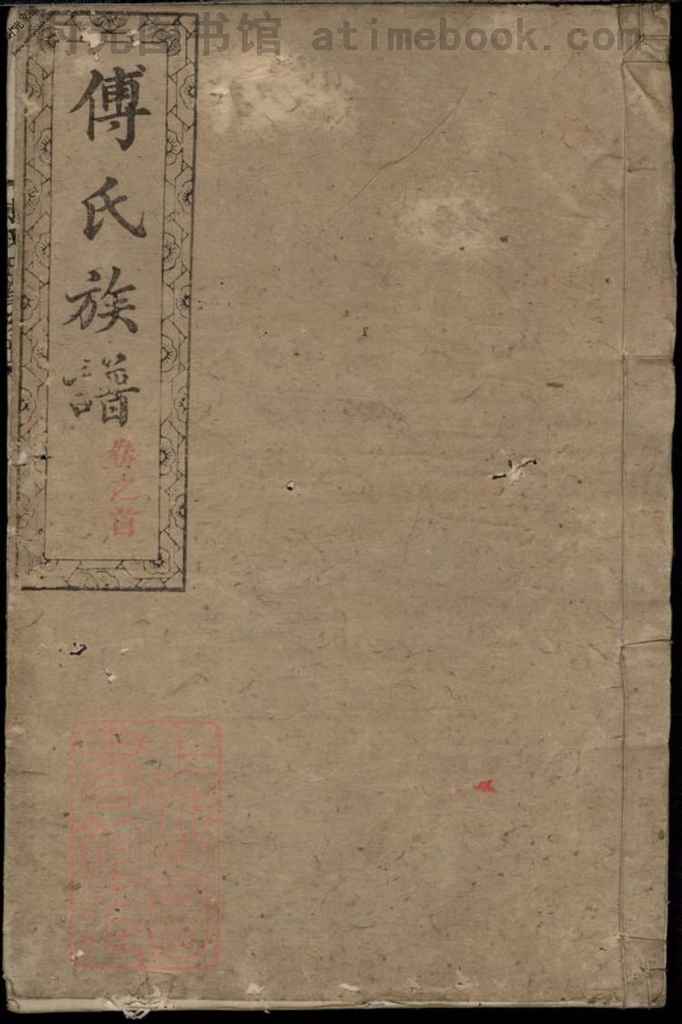 时光图书馆 atimebook.com
傅氏族譜
卷之首